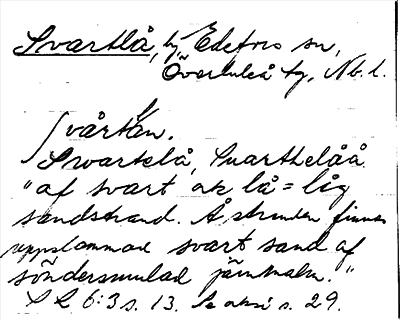 Svartlå, by, Edefors sn,
Överluleå tg, Nb. l.
svårtån.
Swartelå, Suarthelåå
"af svart ock lå = låg
sandstrand. Å stranden finnes
uppslammad svart sand af
söndersmulad järnmalm."
S L 6:3 s. 13. Se också s. 29.